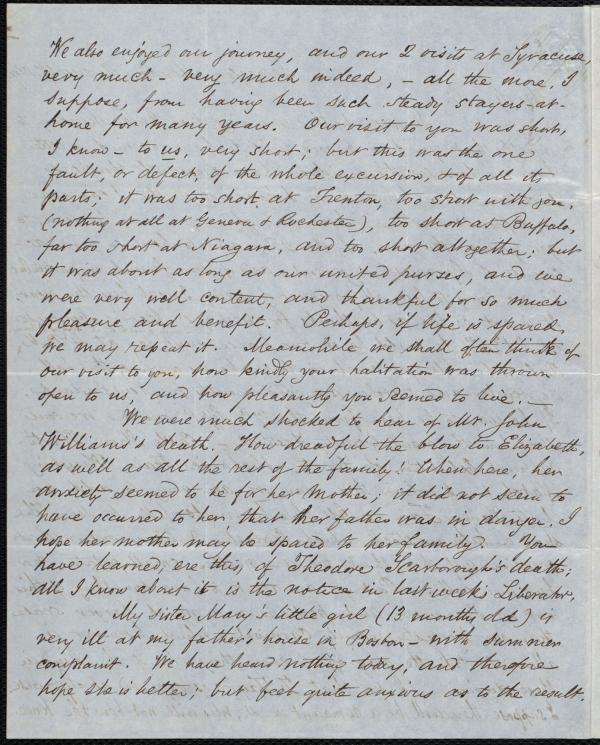 We also enjoyed our journey, and our 2 visits at Syracuse,
very much - very much indeed, - all the more, I
suppose, from having been such steady stayers-at-
home for many years. Our visit to you was short,
I know - to us, very short; but this was the one
fault, or defect, of the whole excursion, & of all its
parts; it was too short at Trenton, too short with you,
(nothing at all at Geneva & Rochester), too short at Buffalo,
far too short at Niagara, and too short altogether; but
it was about as long as our united purses, and we
were very well content, and thankful for so much
pleasure and benefit. Perhaps, if life is spared,
we may repeat it. Meanwhile we shall often think of
our visit to you, how kindly your habitation was thrown
open to us, and how pleasantly you seemed to live. -
We were much shocked to hear of Mr. John
Williams's death. How dreadful the blow to Elizabeth,
as well as all the rest of the family! When here, her
anxiety seemed to be for her Mother; it did not seem to
have occurred to her, that her father was in danger. I
hope her mother may be spared to her family. You
have learned, ere this, of Theodore Scarborough's death;
all I know about it is the notice in last week's Liberator.
My sister Mary's little girl (13 months old) is
very ill at my father's house in Boston - with summer
complaint. We have heard nothing today, and therefore
hope she is better; but feel quite anxious as to the result.